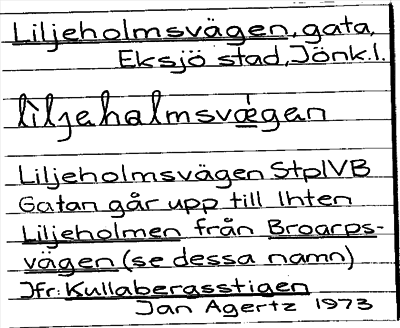 Liljeholmsvägen, gata,
Eksjö stad, Jönk.l.
lìljehalmsvǽgan
Liljeholmsvägen StplVB
Gatan går upp till lhten
Liljeholmen från Broarps-
vägen (se dessa namn)
Jfr: Kullabergsstigen
Jan Agertz 1973